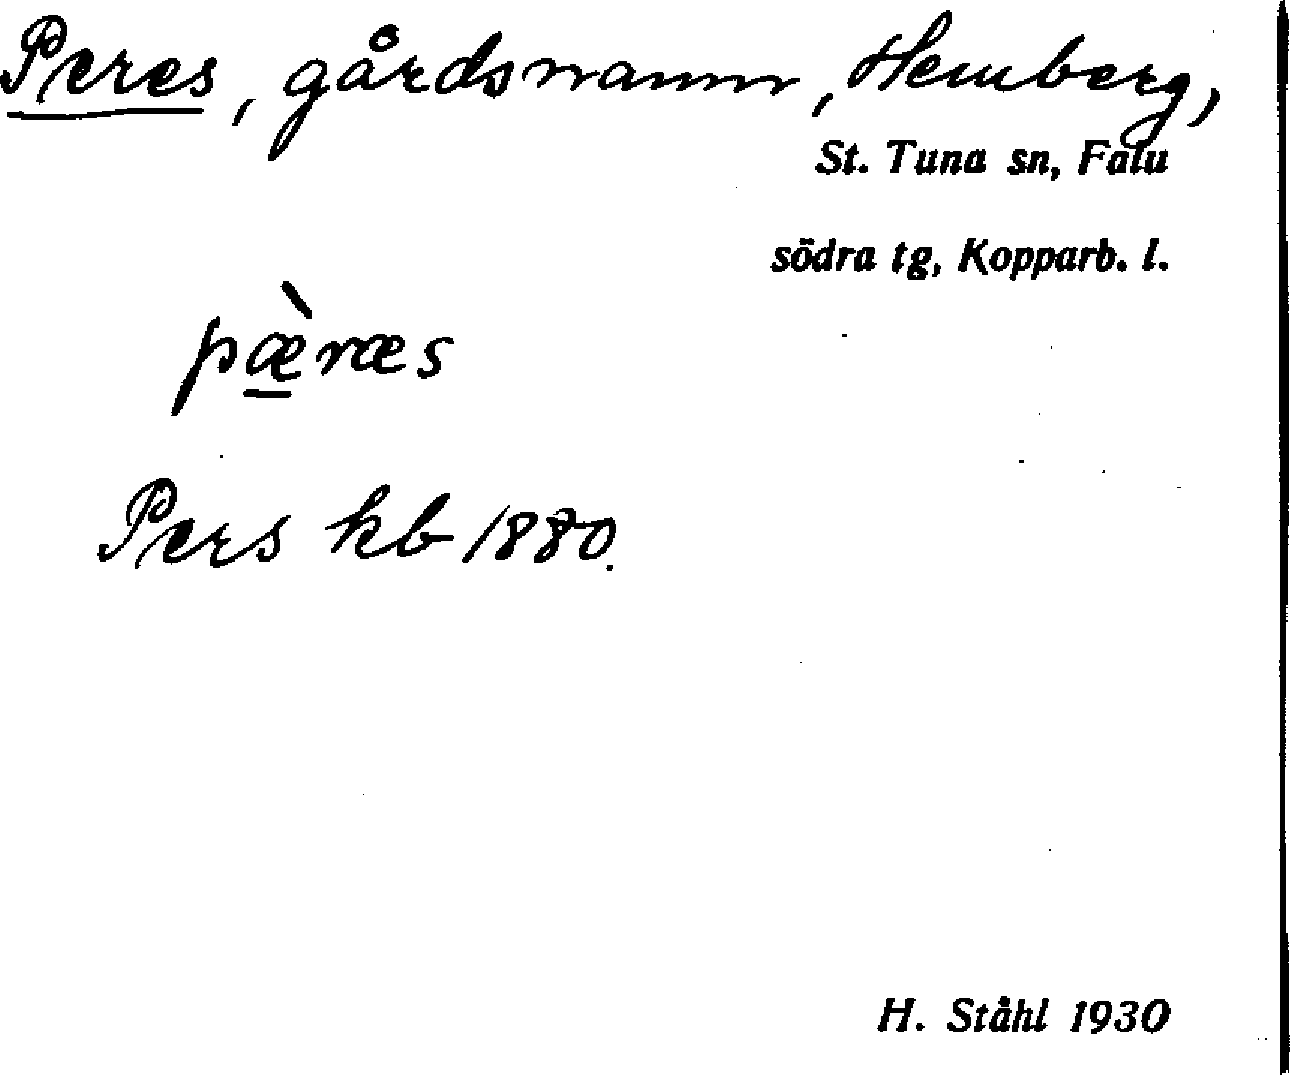 Peres, gårdsnamn, Hemberg,
St. Tuna sn, Falu
södra tg, Kopparb. l.
pæ̲̀ræs
Pers kb 1880.
H. Ståhl 1930